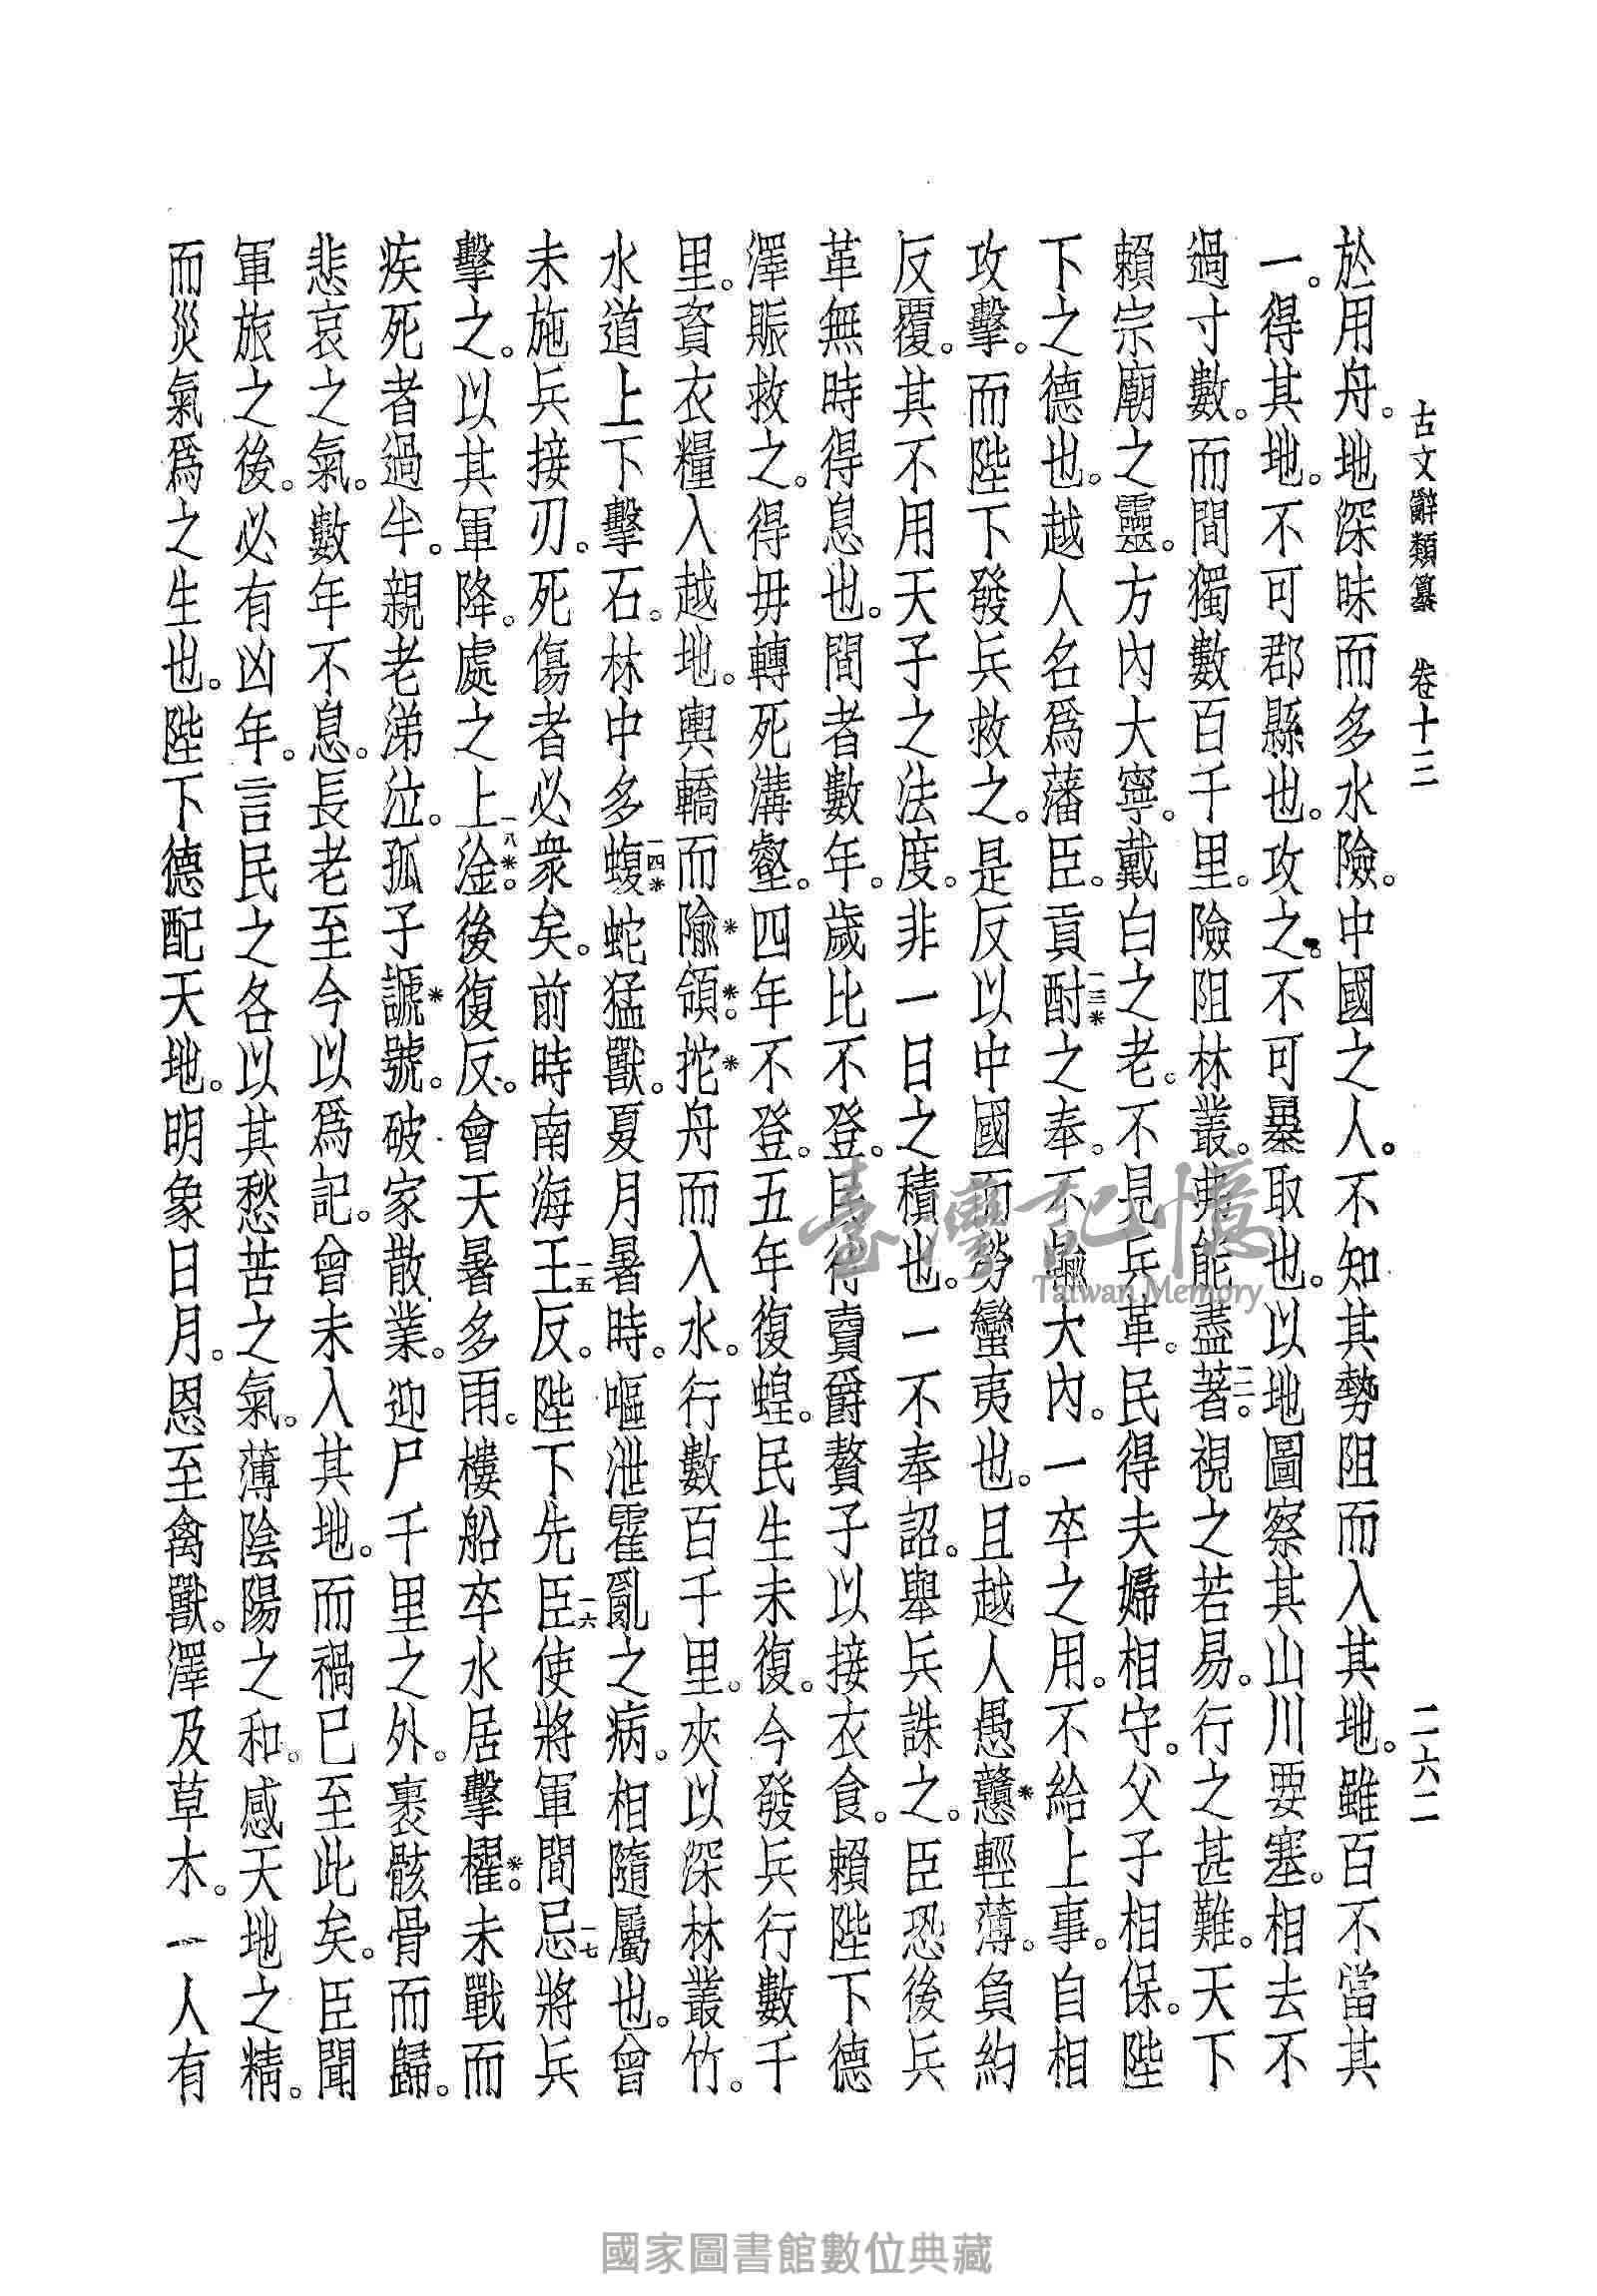 古文辭類纂 卷十三 二六二
於用舟。地深昧而多水險。中國之人。不知其勢阻而入其地。雖百不當其
一。得其地。不可郡縣也。攻之。不可暴取也。以地圖察其山川要塞。相去不
過寸數。而間獨數百千里。險阻林叢。弗能盡著。一二視之若易。行之甚難。天下
賴宗廟之靈。方內大寧。戴白之老。不見兵革。民得夫婦相守。父子相保。陛
下之德也。越人名爲藩臣。貢酎一三*之奉。不輸大內。一卒之用。不給上事。自相
攻擊。而陛下發兵救之。是反以中國而勞蠻夷也。且越人愚戇*輕薄。負約
反覆。其不用天子之法度。非一日之積也。一不奉詔。舉兵誅之。臣恐後兵
革無時得息也。間者數年。歲比不登。民待賣爵贅子以接衣食。賴陛下德
澤賑救之。得毋轉死溝壑。四年不登。五年復蝗。民生未復。今發兵行數千
里。資衣糧入越地。輿轎而隃*領*。拕*舟而入水。行數百千里。夾以深林叢竹。
水道上下擊石。林中多蝮一四*蛇猛獸。夏月暑時。嘔泄霍亂之病。相隨屬也。曾
未施兵接刃。死傷者必衆矣。前時南海王一五反。陛下先臣一六使將軍間忌一七將兵
擊之。以其軍降。處之上淦一八*。後復反。會天暑多雨。樓船卒水居擊櫂*。未戰而
疾死者過半。親老涕泣。孤子謕*號。破家散業。迎尸千里之外。裹骸骨而歸。
悲哀之氣。數年不息。長老至今以爲記。曾未入其地。而禍已至此矣。臣聞
軍旅之後。必有凶年。言民之各以其愁苦之氣。薄陰陽之和。感天地之精。
而災氣爲之生也。陛下德配天地。明象日月。恩至禽獸。澤及草木。一人有
臺灣記憶
Taiwan Memory
國家圖書館數位典藏